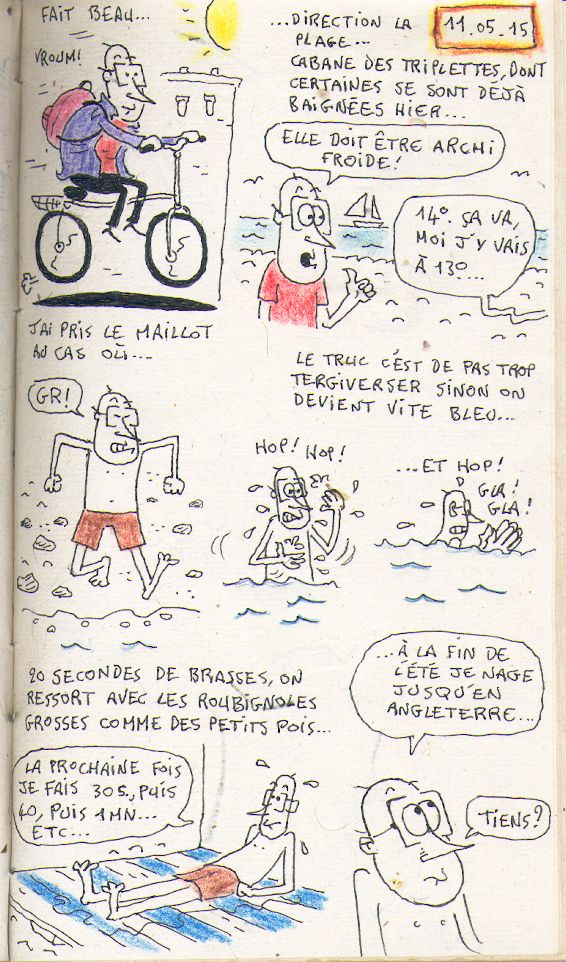 FAIT BEAU...
VROUM!
...DIRECTION LA
PLAGE...
11.05.15
CABANE DES TRIPLETTES, DONT
CERTAINES SE SONT DÉJÀ
BAIGNÉES HIER...
ELLE DOIT ÊTRE ARCHI
FROIDE!
14°. ÇA VA,
MOI J'Y VAIS
À 13°...
J'AI PRIS LE MAILLOT
AU CAS OÙ...
GR!
LE TRUC C'EST DE PAS TROP
TERGIVERSER SINON ON
DEVIENT VITE BLEU...
HOP! HOP!
...ET HOP!
GLA!
GLA!
20 SECONDES DE BRASSES, ON
RESSORT AVEC LES ROUBIGNOLES
GROSSES COMME DES PETITS POIS...
LA PROCHAINE FOIS
JE FAIS 30S., PUIS
40, PUIS 1 MN...
ETC...
...À LA FIN DE
L'ÉTÉ JE NAGE
JUSQU'EN
ANGLETERRE...
TIENS?